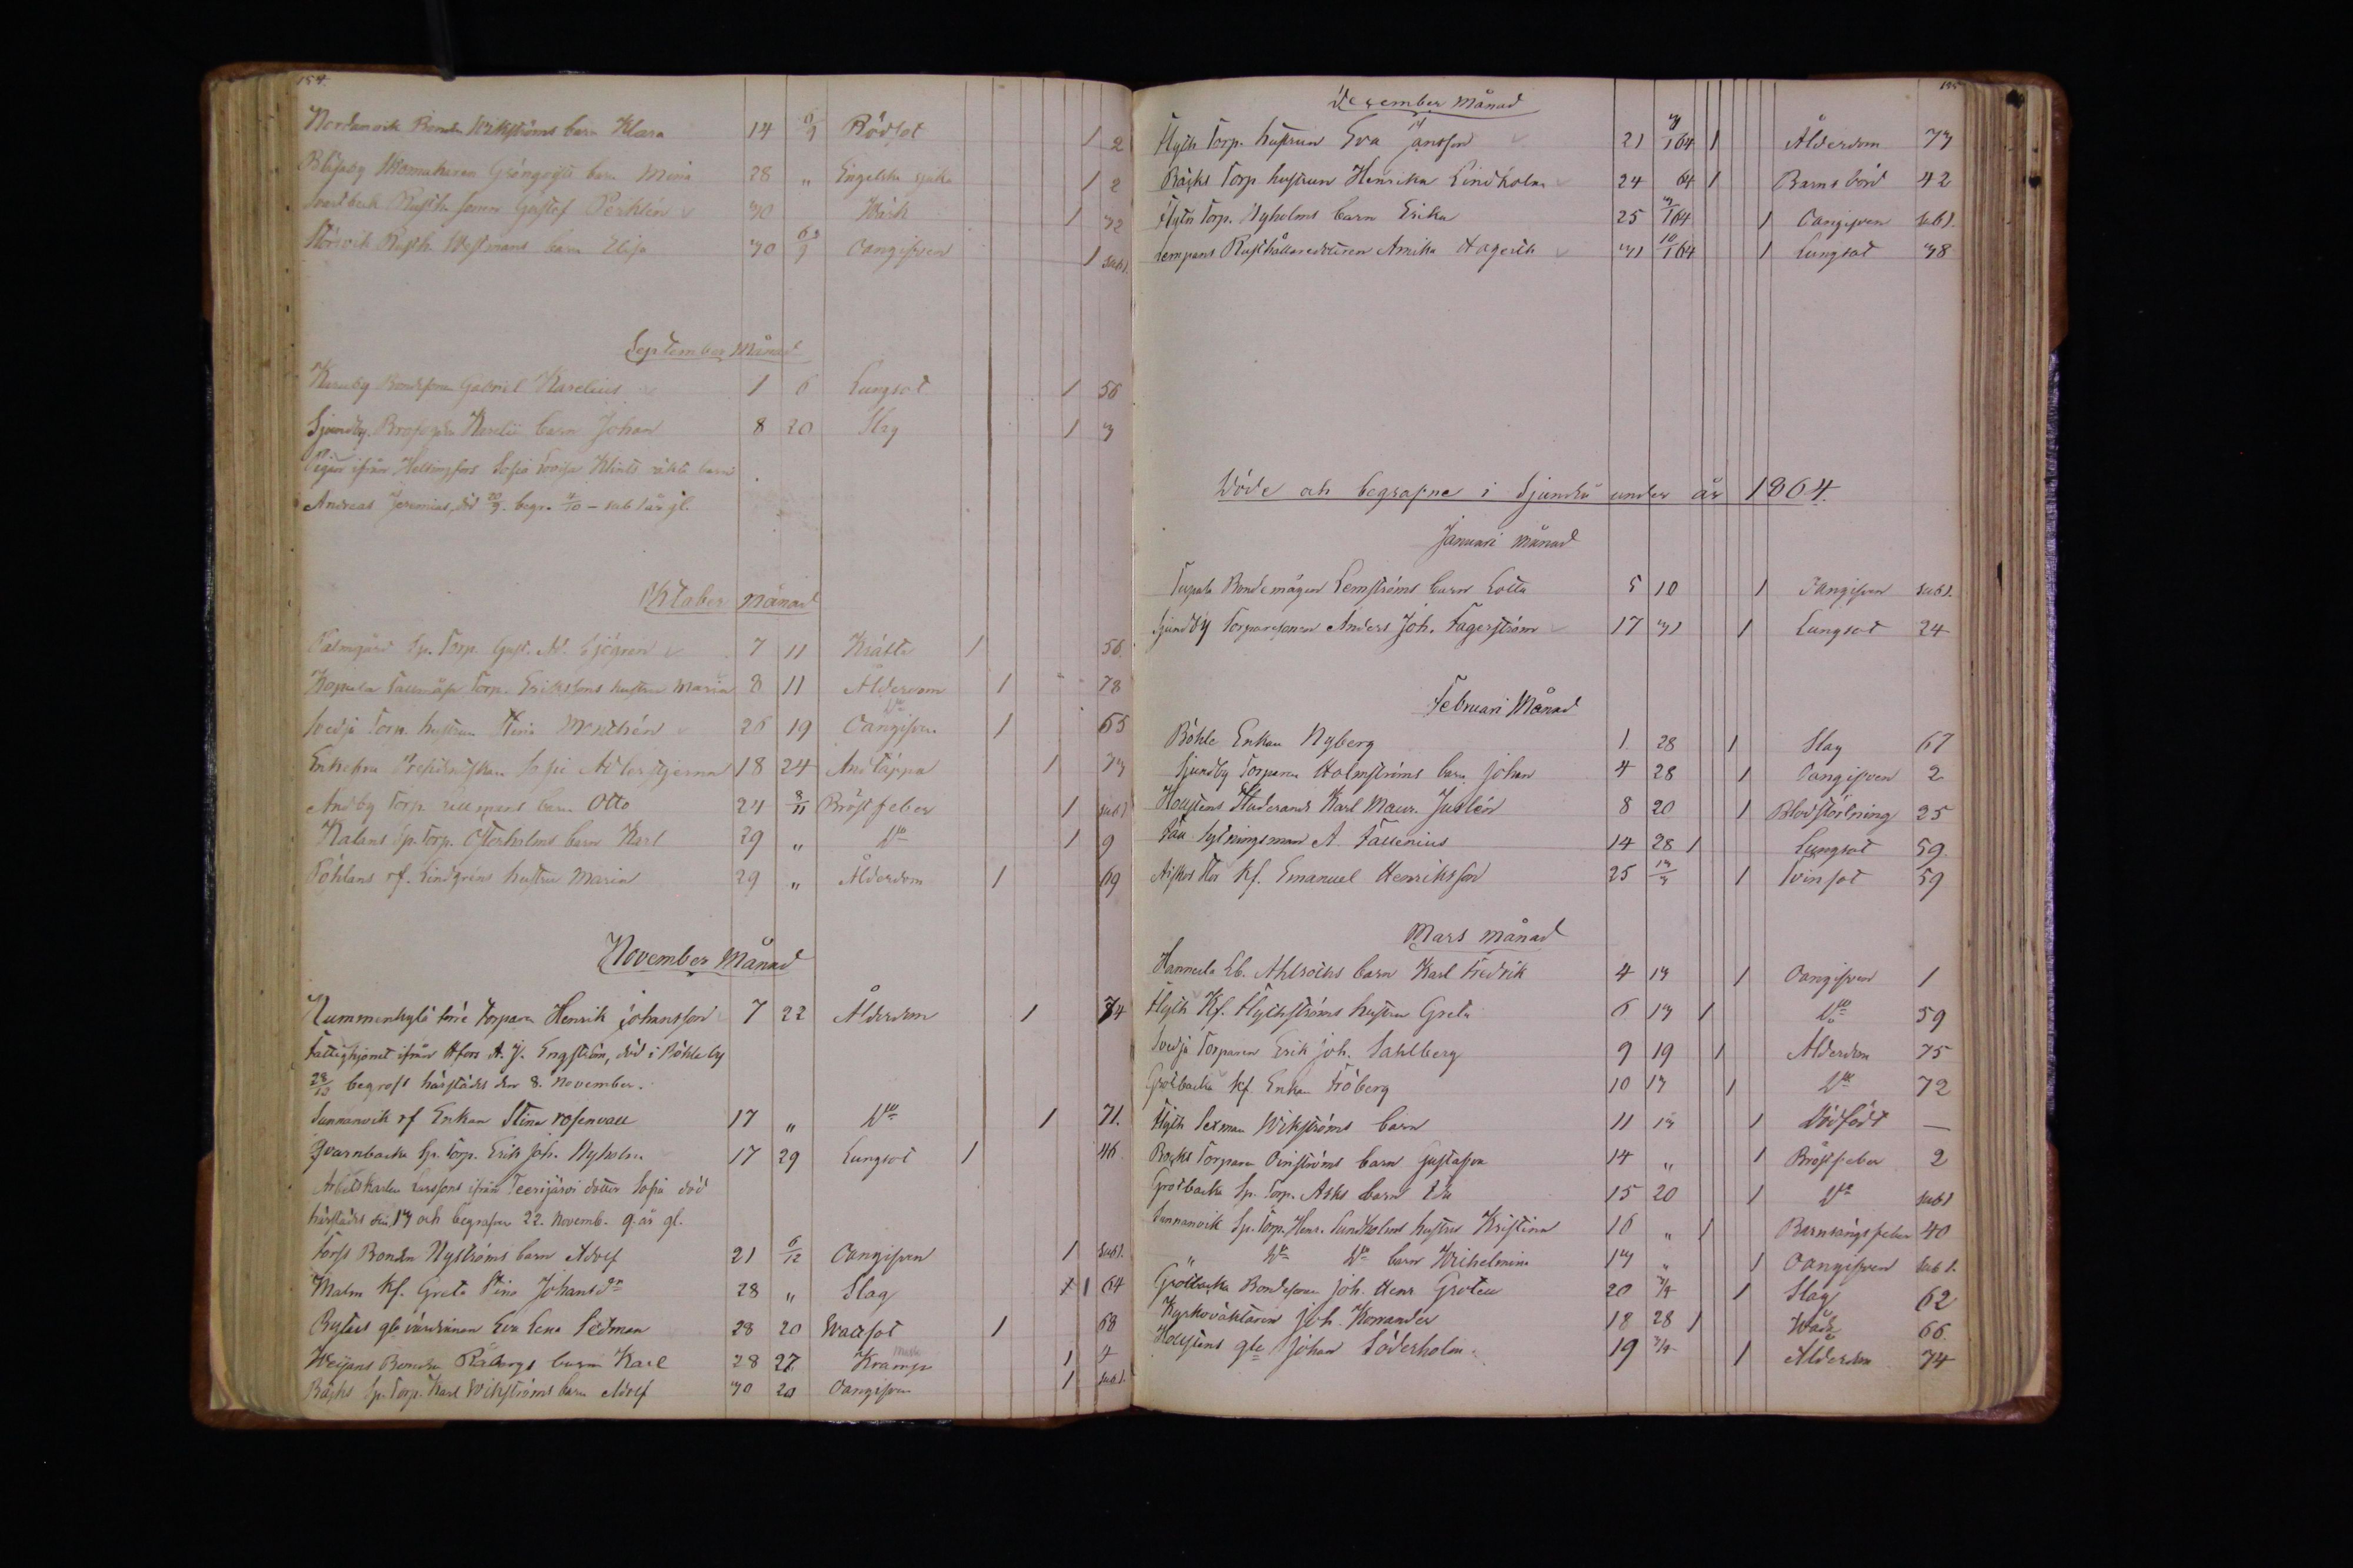 154.
Nordanvik Bonden Wikströms barn Klara 14 6/9 Rödsot 1 2
Skomakaren Gröngvists barn Mina 28 " Engelska sjuka 1 2
Svartbeck Rusth. sonen Gustef Perklén 30 Wärk 1 32
Störsvik Rusth. Westmans barn Elisa 30 6/9 Oangifven 1 sub 1.
September Månad
Karuby Bondesonen Gabriel Karelius 1 6 Lungsot 1 56
Sjundby Karelii barn Johan 8 20 Slag 1 3
Pigan ifrån Helsingfors Sofia Lovisa Klints oäkta barn
Andreas Jeremias, död 20/9. begr. 4/10 – sub 1 år gl.
Oktober Månad
Palmgård Sp. Torp. Gust. Ad. Sjögren 7 11 Kräfta 1 56.
Kopula Tallmåsa Torp. Erikssons hustru Maria 8 11 Ålderdom 1 78
Svedja Torp. hustrun Stina 26 19 Oangifven 1 65
Enkefru Presidentskan Sofie Adlerstjerna 18 24 Andtäppa 1 73
Andby Torp. Lillmans barn Otto 24 8/11 Bröstfeber 1 sub 1
Kalans Sp. Torp. Österholms barn Karl 29 " Do 1 9
Pöhlans rf. Lindgréns hustru Maria 29 " Ålderdom 1 69
November Månad
Nummenkylä förre Torparen Henrik Johansson 7 22 Ålderdom 1 84
Fattighjonet ifrån Hfors A. J. Engström, död i Böhle by
28/10 begrofs härstädes den 8. November.
Sunnanvik rf Enkan Stina Rosenvall 17 " Do 1 71.
Qvarnbacka Sp. Torp. Erik Joh. Nyholm 17 29 Lungsot 1 46
Arbetskarlen Larssons ifrån Teerijärvi dotter Sofia död
härstädes den 17 och begrafven 22. Novemb. 9 år gl.
Forss Bonden Nyströms barn Adolf 21 6/12 Oangifven 1 sub 1.
Malm Kf. Greta Stina Johansdr 28 " Slag x 1 64
Bytars gla värdinnan Eva Lena Sedman 28 20 Wattsot 1 68
Weijans Bonden Råbergs barn Karl 28 27 Kramp 1 4
Bäcks Sp. Torp. Karl Wikströms barn Adolf 30 20 Oangifven 1 sub 1.
155
December Månad
Flyth Torp. hustrun Eva Jansson 21 3/1 64 1 Ålderdom 73
Bäcks Torp hustrun Henrika Lindholm 24 64 1 Barnsbörd 42
Flyth Torp. Nyholms barn Erika 25 3/1 64 1 Oangifven sub 1.
Lempans Rusthållaredottren Amika Hagert 31 10/1 64 1 Lungsot 38
Döde och begrafne i Sjundeå under år 1864.
Januari månad
Tupala Bondemågen Lemströms barn Lotta 5 10 1 Oangifven sub 1.
Sjundby Torparesonen Anders Joh. Fagerström 17 31 1 Lungsot 24
Februari Månad
Böhle Enkan Nyberg 1 28 1 Slag 67
Sjundby Torparen Holmströms barn Johan 4 28 1 Oangifven 2
Hollstens Studerande Karl Maur. Juslén 8 20 1 Blodstörtning 25
Sytningsman A. Fallenius 14 28 1 Lungsot 59
Kf. Emanuel Henriksson 25 13/3 1 Tvinsot 59
Mars månad
Hannula Lb. Ahlroths barn Karl Fredrik 4 13 1 Oangifven 1
Flyth Kf. Flythströms hustru Greta 6 13 1 Do 59
Svedja Torparen Erik Joh. Sahlberg 9 19 1 Ålderdom 75
Grotbacka Kf. Enkan Fröberg 10 13 1 Do 72
Flyth Sexman Wikströms barn 11 13 1 Dödfödt —
Bäcks Torparen Qvinströms barn Gustafva 14 " 1 Bröstfeber 2
Grotbacka Sp. Torp. Asks barn Ida 15 20 1 Do sub 1
Sunnanvik Sp. Torp. Henr. Sundholms hustru Kristina 16 " 1 Barnsängsfeber 40
" Do Do barn Wilhelmina 17 " 1 Oangifven sub 1.
Grotbacka Bondesonen Joh. Henr. Grotell 20 3/4 1 Slag 62
Kyrkoväktaren Joh. Korrander 18 28 1 Wåda 66.
Hollstens gle Johan Söderholm 19 3/4 1 Ålderdom 74